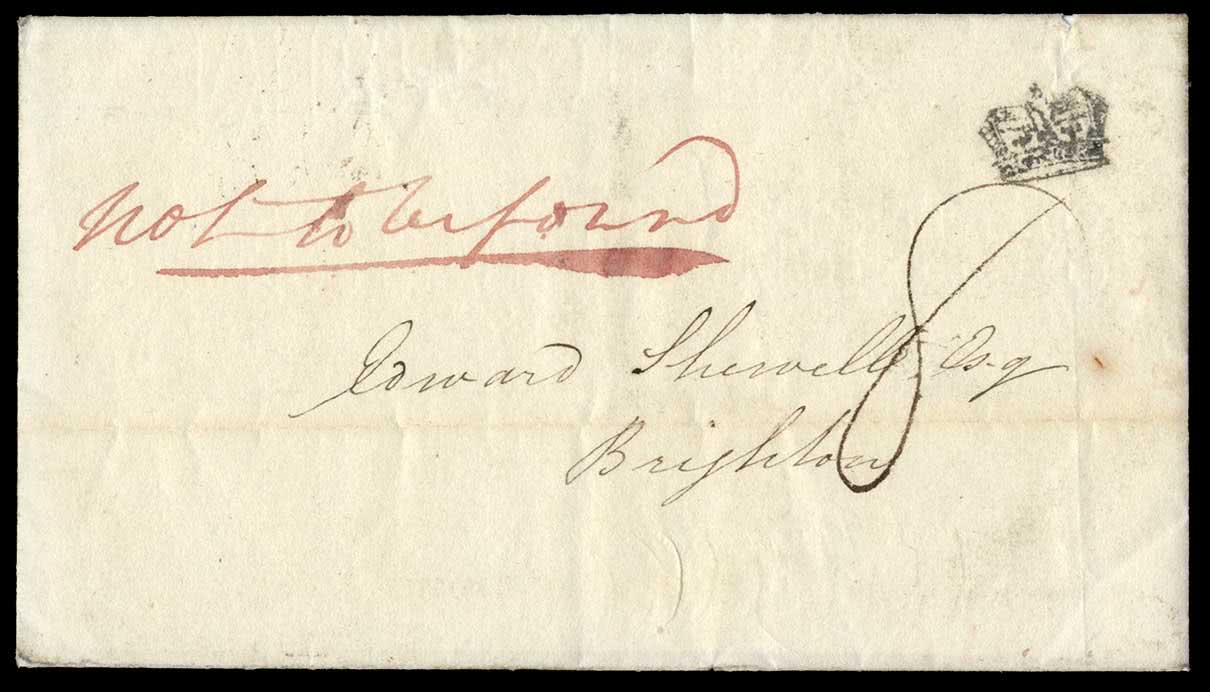 Not to be found
8
Edward Shewell Esq
Brighton